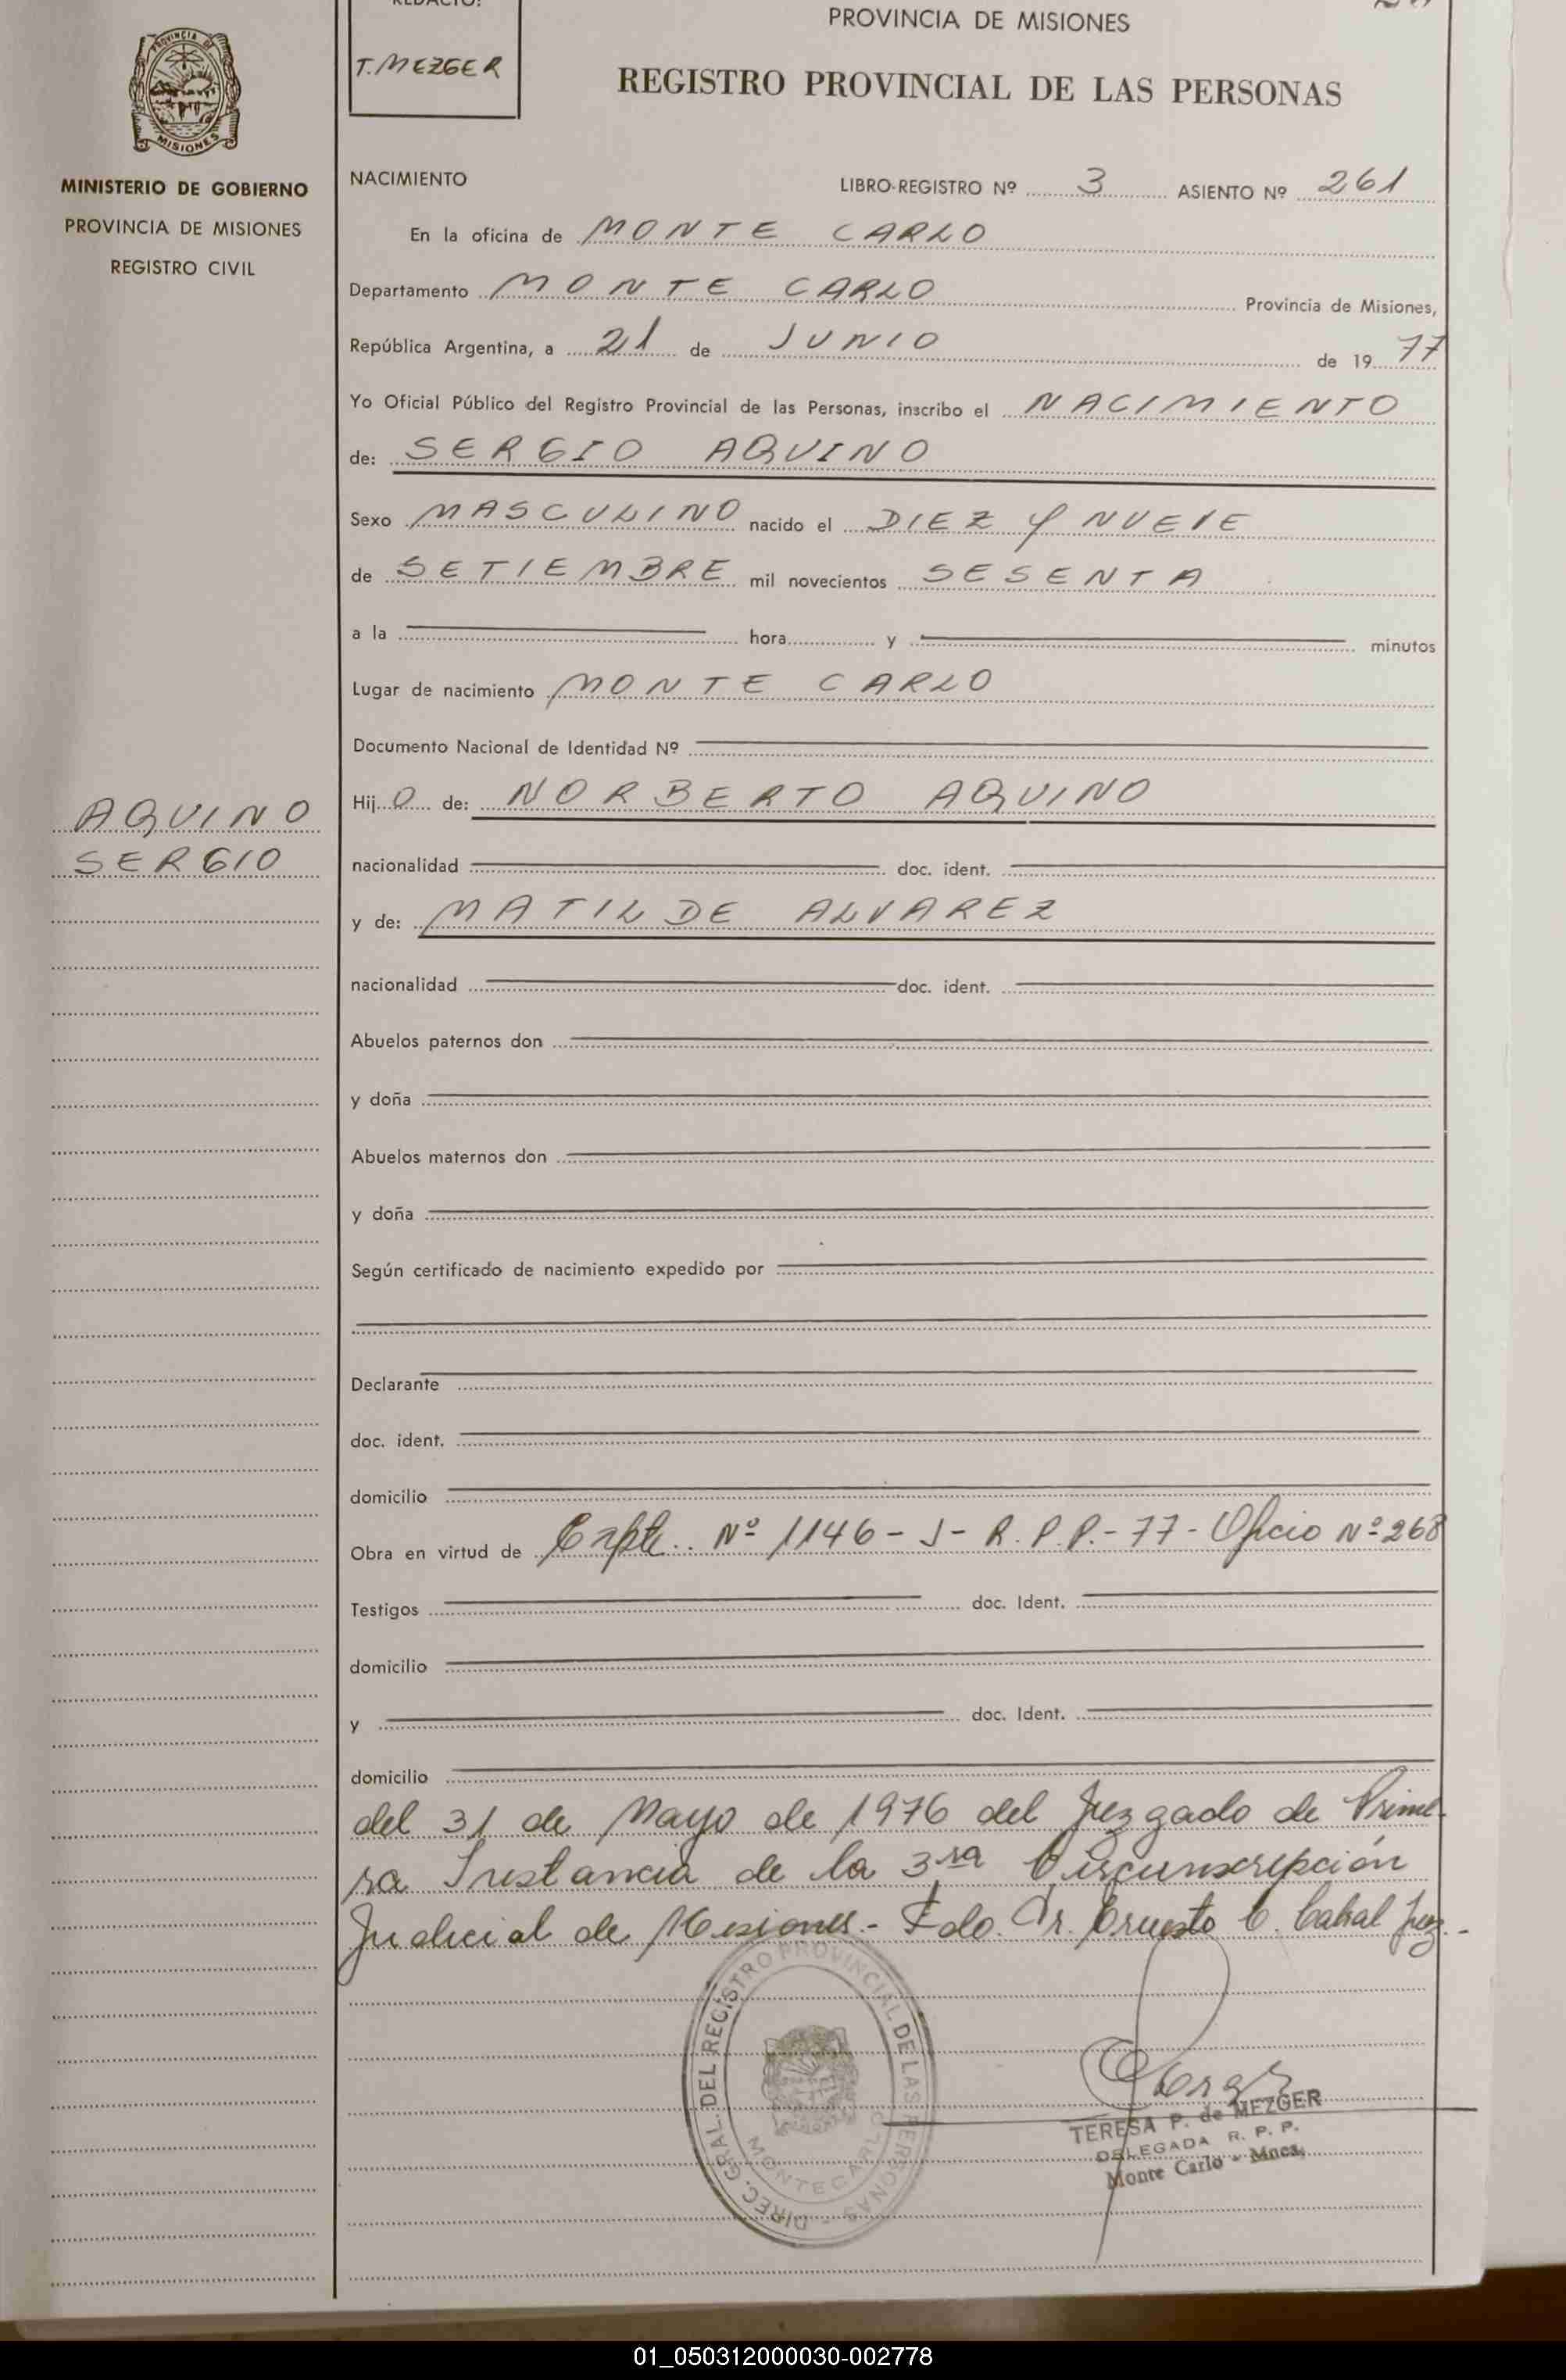 REDACTO:
T. MEZGER
PROVINCIA DE MISIONES
REGISTRO PROVINCIAL DE LAS PERSONAS
PROVINCIA DE
MISIONES
MINISTERIO DE GOBIERNO
PROVINCIA DE MISIONES
REGISTRO CIVIL
AQUINO
SERGIO
NACIMIENTO LIBRO-REGISTRO Nº 3 ASIENTO Nº 261
En la oficina de MONTE CARLO
Departamento MONTE CARLO Provincia de Misiones,
República Argentina, a 21 de JUNIO de 19 77
Yo Oficial Público del Registro Provincial de las Personas, inscribo el NACIMIENTO
de: SERGIO AQUINO
Sexo MASCULINO nacido el DIEZ Y NUEVE
de SETIEMBRE mil novecientos SESENTA
a la hora y minutos
Lugar de nacimiento MONTE CARLO
Documento Nacional de Identidad Nº
Hij O de: NORBERTO AQUINO
nacionalidad doc. ident.
y de: MATILDE ALVAREZ
nacionalidad doc. ident.
Abuelos paternos don
y doña
Abuelos maternos don
y doña
Según certificado de nacimiento expedido por
Declarante
doc. ident.
domicilio
Obra en virtud de Expte. Nº 1146 - J - R. P. P. - 77 - Oficio Nº 268
Testigos doc. Ident.
domicilio
y doc. Ident.
domicilio
del 31 de Mayo de 1976 del Juzgado de Prime-
ra Instancia de la 3ra Circunscripción
Judicial de Misiones.- Fdo. Dr. Ernesto C. Cabral Juez.-
DIREC. GRAL. DEL REGISTRO PROVINCIAL DE LAS PERSONAS -
MONTECARLO
TERESA P. de MEZGER
DELEGADA R. P. P.
Monte Carlo - Mnes.
01_050312000030-002778